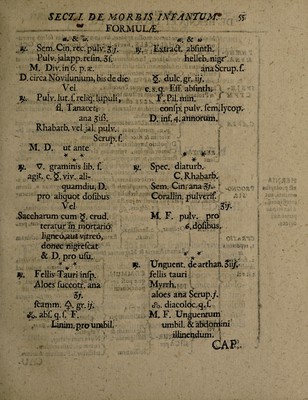 SECT.I. DE MORBIS INFANTUM. 55
FORMULÆ.
℞. Sem. Cin. rec. pulv. ʒj.
Pulv. jalapp. resin. ʒſ.
M. Div. in 6. p. æ.
D. circa Novilunium, bis de die
Vel
℞. Pulv. lut. ſ. reliq. lupuli,
fl. Tanacet;
ana ʒiſſ.
Rhabarb. vel jal. pulv.
Scrup. ſ.
M. D. ut ante
℞. ▽. graminis lib. ſ.
agit. c. ☿. viv. ali-
quamdiu, D.
pro aliquot dosibus
Vel
Saccharum cum ☿. crud.
teratur in mortario
ligneo, aut vitreo,
donec nigrescat
& D. pro usu.
℞. Fellis Tauri insp.
Aloes succotr. ana
ʒj.
scamm. gr. ij.
abs. q. s. F.
Linim. pro umbil.
℞. Extract. absinth.
helleb. nigr.
ana Scrup. ſ.
☿. dulc. gr. iij.
c. s. q. Ess. absinth.
F. Pil. min.
consp. pulv. sem. lycop.
D. in ſ. 4. annorum.
℞. Spec. diaturb.
C. Rhabarb.
Sem. Cin. ana ʒſ.
Corallin. pulveris.
ʒij.
M. F. pulv. pro
6. dosibus.
℞. Unguent. de arthan. ʒiij.
fellis tauri
Myrrh.
aloes ana Scrup. j.
diacoloc. q. s.
M. F. Unguentum
umbil. & abdomini
illinendum.
CAP.